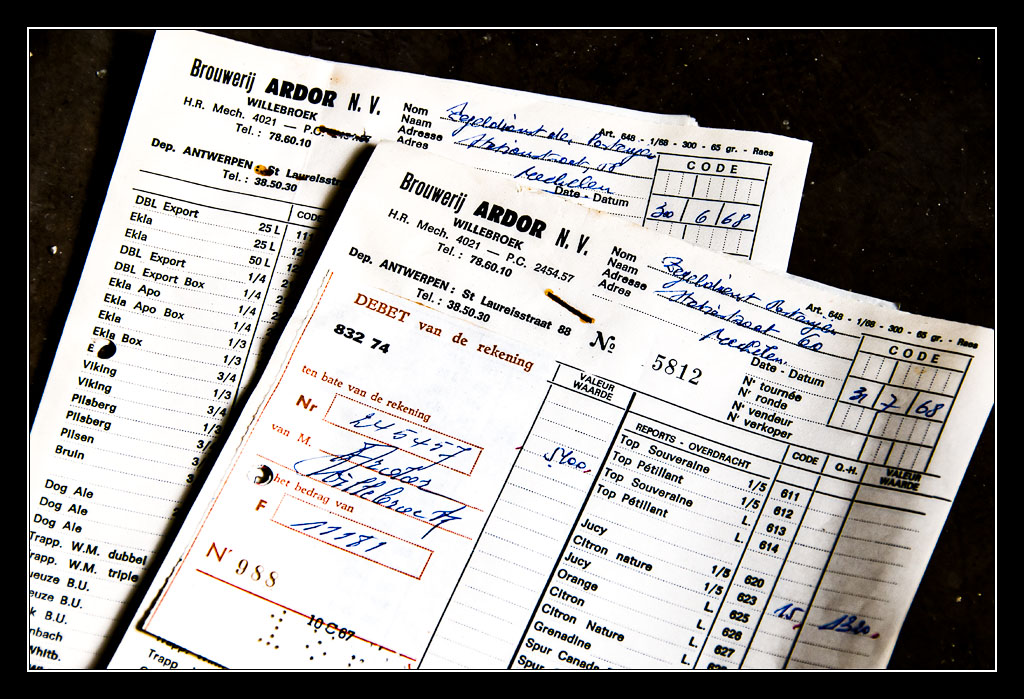 Brouwerij ARDOR N. V.
WILLEBROEK
H.R. Mech. 4021 — P.C. 2454.57
Tel. : 78.60.10
Dep. ANTWERPEN : St Laurelsstr
Tel. : 38.50.30
Nom
Naam
Adresse
Adres
Mechelen
Art. 648 - 1/68 - 300 - 65 gr. - Raes
CODE
Date - Datum
30 6 68
CODE
DBL Export 25 L 111
Ekla 25 L
Ekla 50 L
DBL Export 1/4
DBL Export Box 1/4
Ekla Apo 1/4
Ekla Apo Box 1/4
Ekla 1/3
Ekla Box 1/3
E 3/4
Viking 1/3
Viking 3/4
Pilsberg
Pilsberg
Pilsen
Bruin
Dog Ale
Dog Ale
Dog Ale
Trapp. W.M. dubbel
rapp. W.M. triple
ueuze B.U.
euze B.U.
k B.U.
nbach
Whitb.
Brouwerij ARDOR N. V.
WILLEBROEK
H.R. Mech. 4021 — P.C. 2454.57
Tel. : 78.60.10
Dep. ANTWERPEN : St Laurelsstraat 88
Tel. : 38.50.30
Nom
Naam
Adresse
Adres
Mechelen
Art. 648 - 1/68 - 300 - 65 gr. - Raes
CODE
Date - Datum
31 7 68
Nº 5812
Nr tournée
Nr ronde
Nr vendeur
Nr verkoper
DEBET van de rekening
832 74
ten bate van de rekening
Nr 245457
van M. Ardor
Willebroek
het bedrag van
F 11181
N° 988
10 C 67
Trapp
VALEUR
WAARDE
5400,
REPORTS - OVERDRACHT CODE Q.-H. VALEUR WAARDE
Top Souveraine 1/5 611
Top Pétillant 1/5 612
Top Souveraine L. 613
Top Pétillant L. 614
Jucy 1/5 620
Citron nature 1/5 623
Jucy L. 625 15, 1320,
Orange L. 626
Citron L. 627
Citron Nature L.
Grenadine
Spur Canada
Spur